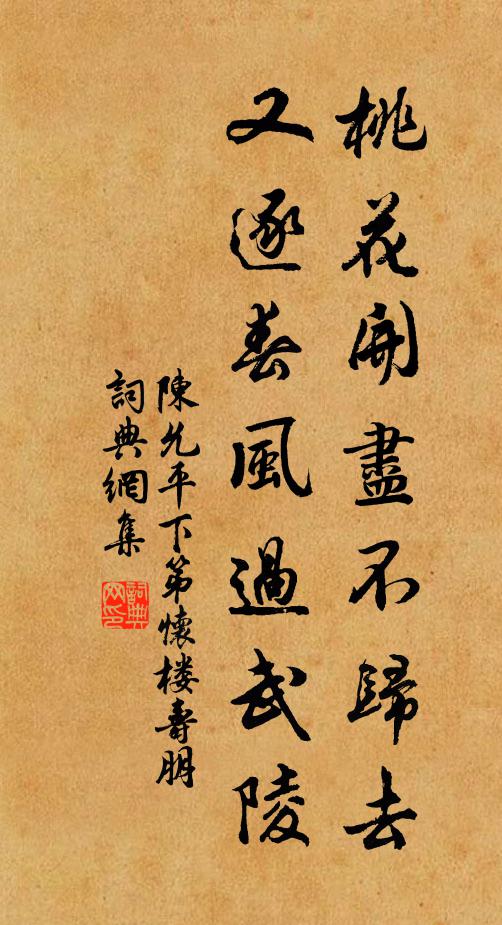 桃花開盡不歸去
又逐春風過武陵
陳允平下第懷楼壽朋
詞典網集
詞典網印